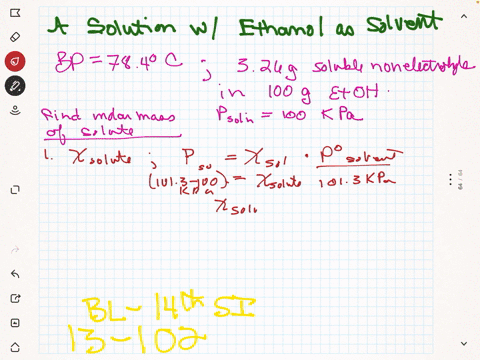 A Solution w/ Ethanol as Solvent
BP = 78.4° C ; 3.26g soluble nonelectrolyte
in 100 g EtOH.
Find molar mass of solute
P soln = 100 KPa
1. X solute ; P = X sol · P° solvent
(101.3-100) KPa = X solute 101.3 KPa
X solu
BL - 14th SI
13-102